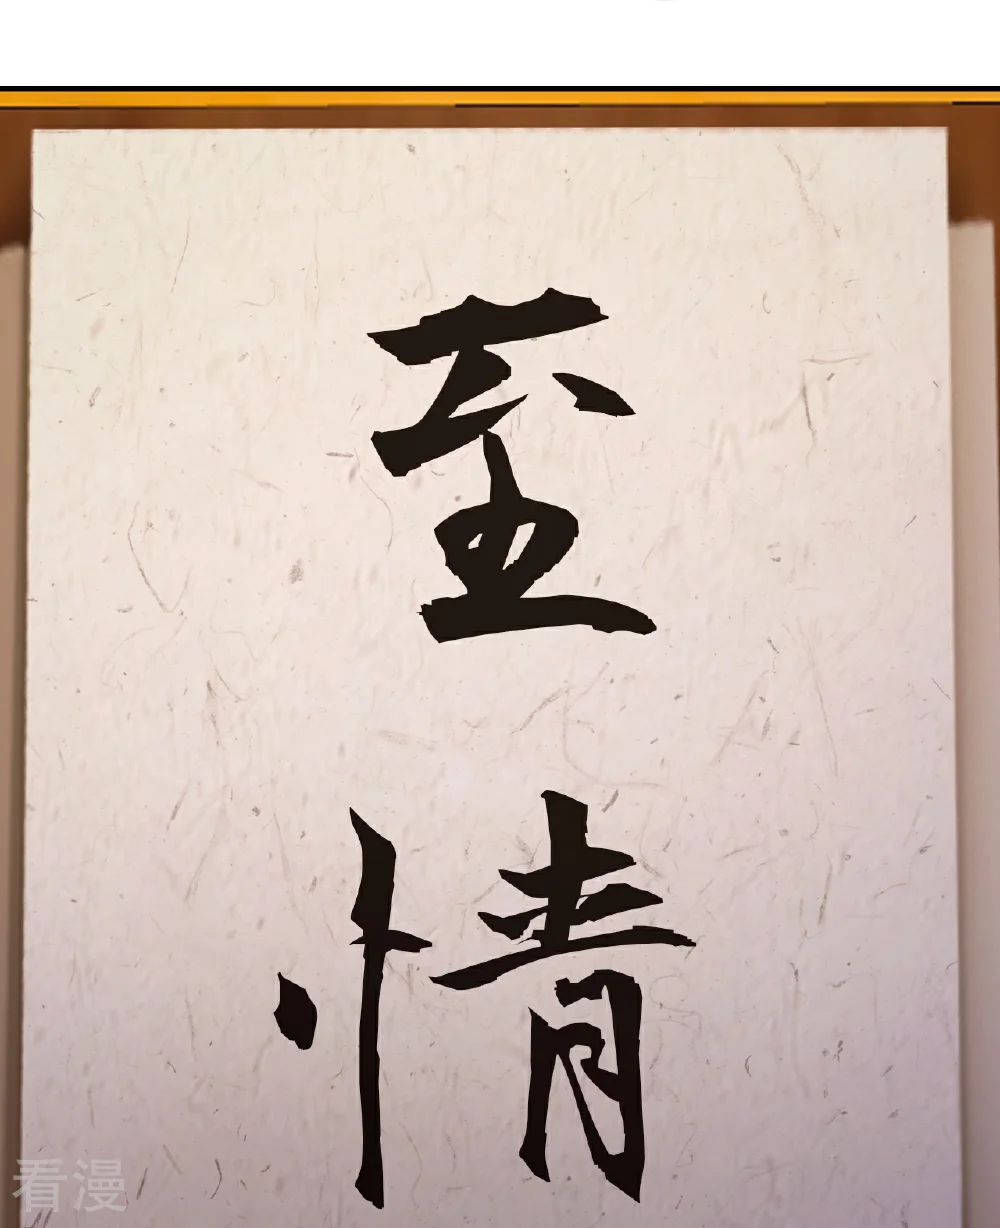 至
情
看漫